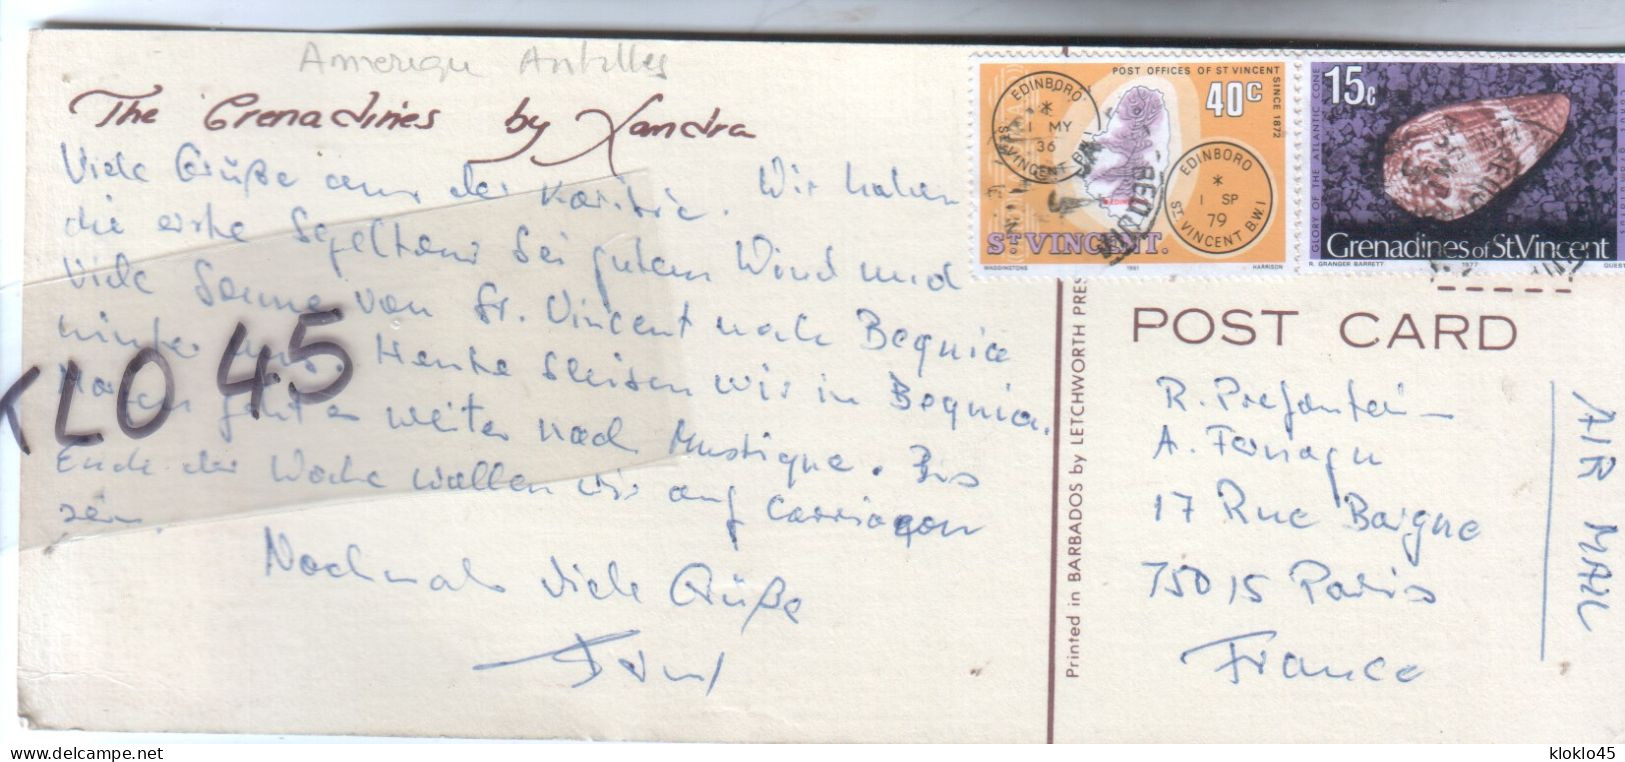 Amerique Antilles
The Grenadines by Xandra
Viele Grüße aus der Karibik. Wir haben
die erste Segeltour bei gutem Wind und
viel Sonne von St. Vincent nach Bequia
hinter uns. Heute bleiben wir in Bequia.
Morgen geht es weiter nach Mustique. Bis
Ende der Woche wollen wir auf Carriacou
sein.
Nochmals viele Grüße
KLO 45
POST OFFICES OF ST VINCENT
SINCE 1872
40c
EDINBORO
1 MY
36
ST VINCENT B.W.I
EDINBORO
1 SP
79
ST. VINCENT B.W.I
ST. VINCENT.
WADDINGTONS 1981 HARRISON
15c
GLORY OF THE ATLANTIC CONE
Grenadines of St.Vincent
R. GRANGER BARRETT 1977 QUEST
POST CARD
Printed in BARBADOS by LETCHWORTH PRES
R.
A.
17 Rue Bargue
75015 Paris
France
AIR MAIL
kloklo45 - delcampe.net
kloklo45